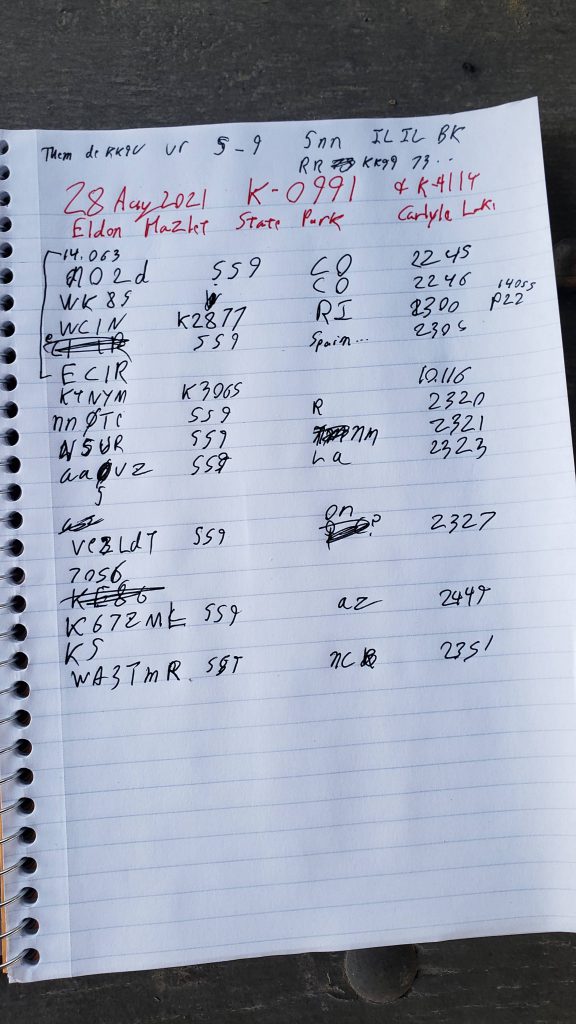 Them de KK9U ur 5-9 5nn IL IL BK
RR KK99 73..
28 Aug 2021 K-0991 & K-4114
Eldon Hazlet State Park Carlyle Lake
14.063
N02d 559 CO 2245
WK8S CO 2246
WC1N K2877 RI 2300 14055 P22
559 Spain... 2305
EC1R
10.116
K4NYM K3065 2320
nnØTC 559 R 2321
N5UR 559 nm 2323
aaØvz 559 La
5
on
ve3LdT 559 ? 2327
7056
KE86
K67ZME 559 az 2449
K5
WA3TmR. 55T nc 2351